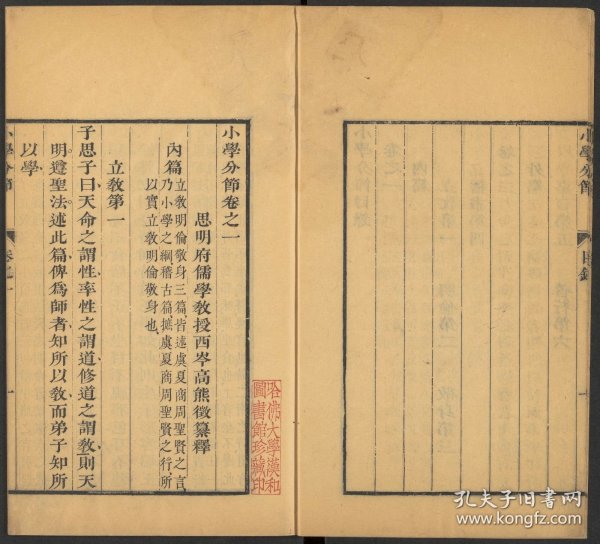 小學分節卷之一
思明府儒學教授西岑高熊徵纂釋
內篇
立敎明倫敬身三篇皆述虞夏商周聖賢之言
乃小學之綱稽古篇摭虞夏商周聖賢之行所
以實立敎明倫敬身也
立敎第一
子思子曰天命之謂性率性之謂道修道之謂敎則天
明遵聖法述此篇俾爲師者知所以敎而弟子知所
以學
小學分節
卷之一
一
小學分節
目錄
一
哈佛大學漢和
圖書館珍藏印
孔夫子旧书网
www.kongfz.com